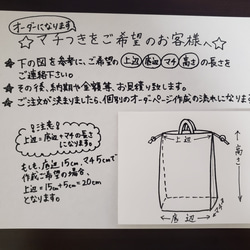 オーダーになります。
☆マチつきをご希望のお客様へ☆
★下の図を参考に、ご希望の上辺 底辺 マチ 高さの長さを
ご連絡下さい。
★その後、納期や金額等、お見積り致します。
★ご注文が決まりましたら、個別のオーダーページ作成の流れになります
！注意！
上辺＝底辺＋マチの長さ
になります。
もしも、底辺15cm、マチ5cmで
作成ご希望の場合、
上辺＝15cm+5cm=20cm
となります。
上辺
高さ
底辺
マチ